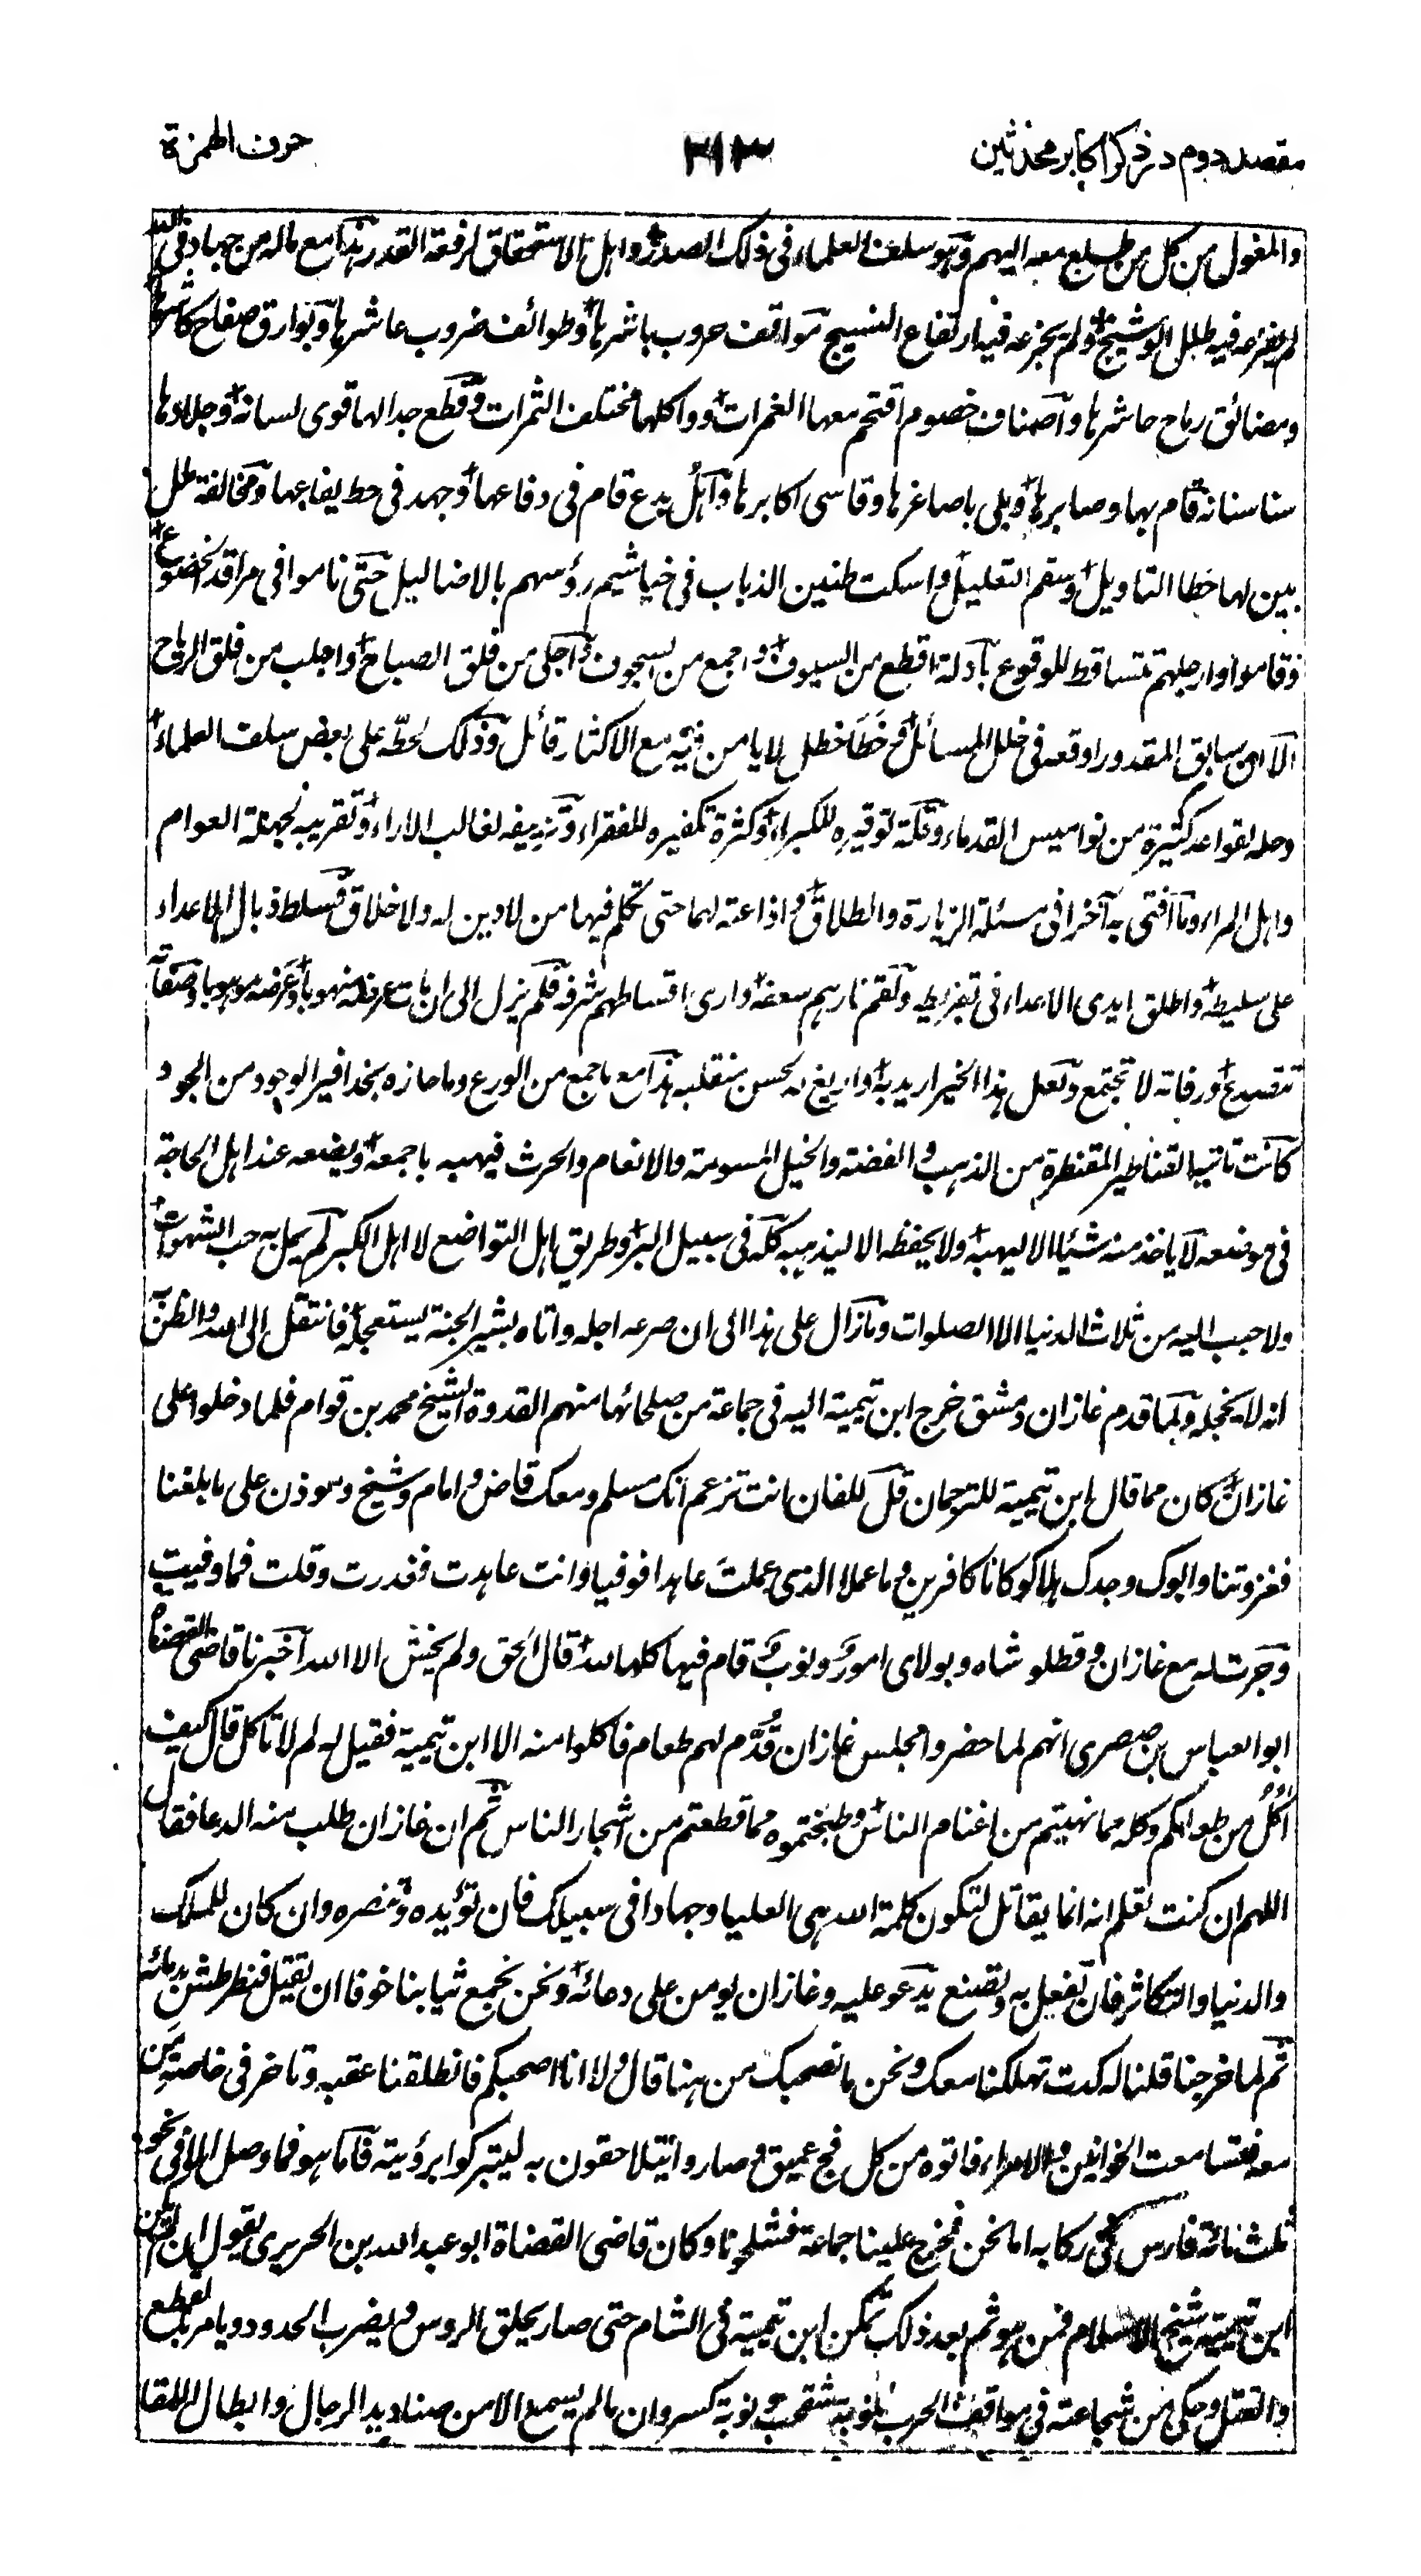 مقصد دوم در ذکر اکابر محدثین
۳۱۳
حرف الهمزة
والمغول من كل من طلع معه اليهم وهو سلف العلماء فى ذلك الصدر واهل الاستحقاق لرفعة القدر هذا مع ماله من جهاد فى الله
لم يفزعه فيه طلل الوشيج ولم يجزعه فيه ارتفاع النسيج مواقف حروب باشرها وطوائف ضروب عاشرها وبوارق صفاح كاشرها
ومضائق رماح حاشرها واصناف خصوم اقتحم معها الغمرات وواكلها مختلف الثمرات وقطع جدالها قوى لسانه وجلادها
سنا سنانه قام بها وصابرها وبلى باصاغرها وقاسى اكابرها واهل بدع قام فى دفاعها وجهد فى حط يفاعها ومخالفة ملل
بين لها خطا التاويل وسقم التعليل واسكت طنين الذباب فى خياشيم رؤسهم بالاضاليل حتى ناموا فى مراقد الخضوع
وقاموا وارجلهم تتساقط للوقوع بادلة اقطع من السيوف واجمع من السجوف واجلى من فلق الصباح واجلب من فلق الرماح
الا ان سابق المقدور اوقعه فى خلل المسائل وخطا خطل لا يامن فيه مع الاكثار قائل وذلك لحطه على بعض سلف العلماء
وحله لقواعد كثيرة من نواميس القدماء وقلة توقيره للكبراء وكثرة تكفيره للفقراء وتزييفه لغالب الاراء وتقريبه لجهلة العوام
واهل المراء وما افتى به آخرا فى مسئلة الزيارة والطلاق واذاعته لهما حتى تكلم فيهما من لا دين له ولا خلاق فسلط ذبال الاعداء
على سليطه واطلق ايدى الاعداء فى تفريطه ولقم نارهم سعفه وارى اقساطهم شرفه فلم يزل الى ان مات عرضه منهوبا وعرضه موهوبا وصفاته
تتصدع ورفاته لا تجتمع ولعل هذا الخير اريد به واريغ له لحسن منقلبه هذا مع ما جمع من الورع وما حازه بحذافير الوجود من الجود
كانت تاتيه القناطير المقنطرة من الذهب والفضة والخيل المسومة والانعام والحرث فيهبه باجمعه ويضعه عند اهل الحاجة
فى موضعه لا ياخذ منه شيئا الا ليهبه ولا يحفظه الا ليذهبه كله فى سبيل البر وطريق اهل التواضع لا اهل الكبر لم يمل به حب الشهوات
ولا حبب اليه من ثلاث الدنيا الا الصلوات وما زال على هذا الى ان صرعه اجله واتاه بشير الجنة يستعجله فانتقل الى الله والظن
انه لا يخجله ولما قدم غازان دمشق خرج ابن تيمية اليه فى جماعة من صلحائها منهم القدوة الشيخ محمد بن قوام فلما دخلوا على
غازان كان مما قال ابن تيمية للترجمان قل للقان انت تزعم انك مسلم ومعك قاض وامام وشيخ وموذن على ما بلغنا
فغزوتنا وابوك وجدك هلاكو كانا كافرين وما عملا الذى عملت عاهدا فوفيا وانت عاهدت فغدرت وقلت فما وفيت
وجرت له مع غازان وقطلو شاه وبولاى امور ونوب قام فيها كلها لله قال الحق ولم يخش الا الله اخبرنا قاضى القضاة
ابو العباس بن صصرى انهم لما حضروا مجلس غازان قدم لهم طعام فاكلوا منه الا ابن تيمية فقيل له لم لا تاكل قال كيف
آكل من طعامكم وكله مما نهبتم من اغنام الناس وطبختموه مما قطعتم من اشجار الناس ثم ان غازان طلب منه الدعا فقال
اللهم ان كنت تعلم انه انما يقاتل لتكون كلمة الله هى العليا وجهادا فى سبيلك فان تؤيده وتنصره وان كان للملك
والدنيا والتكاثر فان تفعل به وتصنع يدعو عليه وغازان يومن على دعائه ونحن نجمع ثيابنا خوفا ان يقتل فنطرطش بدمائه
ثم لما خرجنا قلنا له كدت تهلكنا معك ونحن ما نصحبك من هنا قال ولا انا اصحبكم فانطلقنا عقبه وتاخر فى خاصة من
معه فتسامعت الخوانين والامراء فاتوه من كل فج عميق وصاروا يتلاحقون به ليتبركوا برؤيته فاما هو فما وصل الا فى نحو
ثلث مائة فارس فى ركابه اما نحن فخرج علينا جماعة فشلحونا وكان قاضى القضاة ابو عبد الله بن الحريرى يقول ان لم يكن
ابن تيمية شيخ الاسلام فمن هو ثم بعد ذلك تمكن ابن تيمية فى الشام حتى صار يحلق الروس ويضرب الحدود ويامر بالقطع
والقتل وحكى من شجاعته فى مواقف الحرب نوبة شقحب ونوبة كسروان ما لم يسمع الا من صناديد الرجال وابطال اللقا